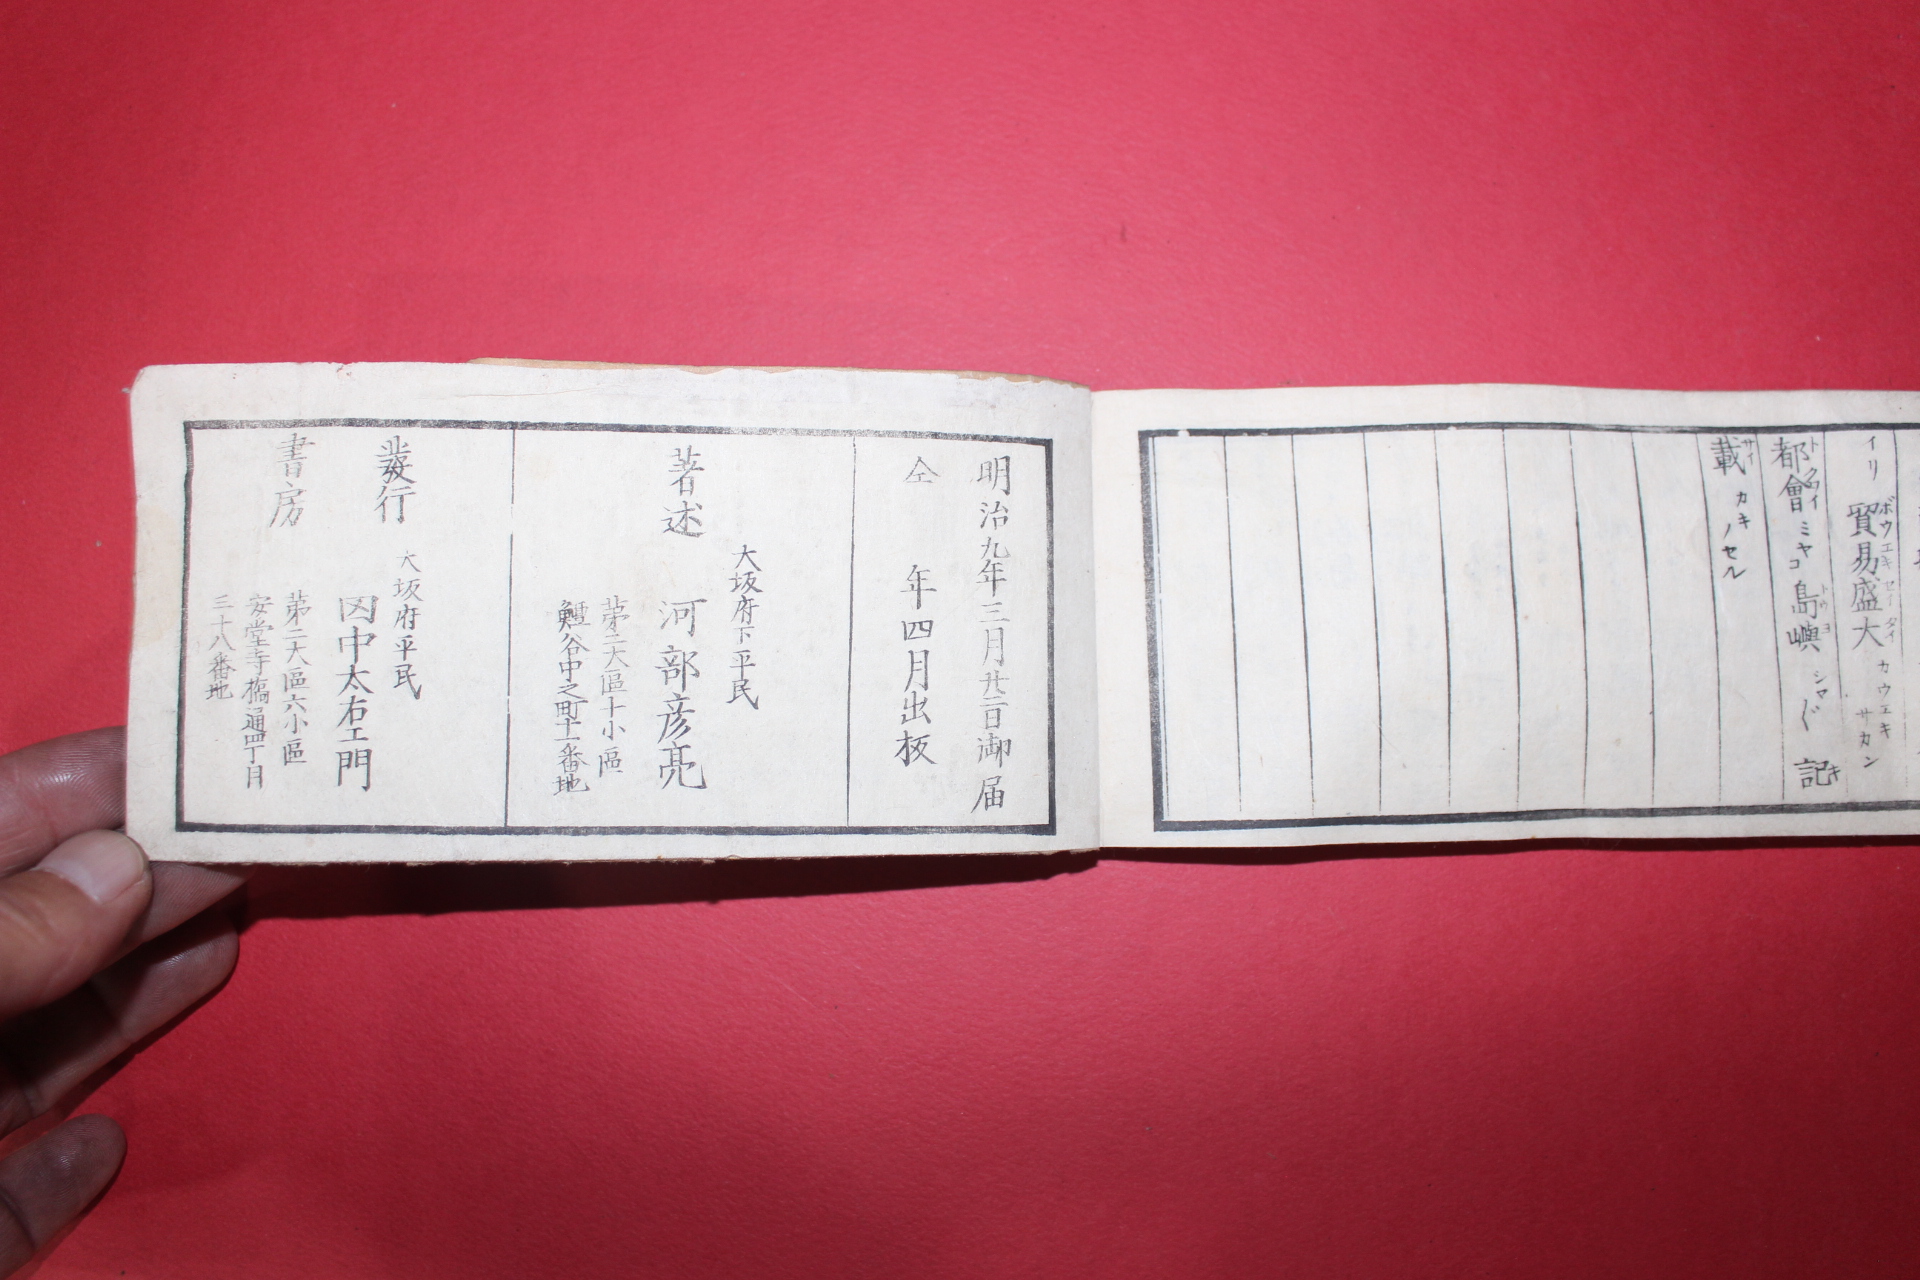 イリ 貿易盛大 カウエキ サカン
ボウエキ セイ ダイ
都會 ミヤコ 島嶼 シマ〴〵 記
トクワイ トウヨ キ
載 カキノセル
サイ
明治九年三月廿二日御届
仝 年四月出板
大坂府下平民
著述 河部彦亮
苐二大區十小區
鰻谷中之町十一番地
大坂府平民
發行
書房
岡中太右エ門
苐二大區六小區
安堂寺橋通四丁目
三十八番地